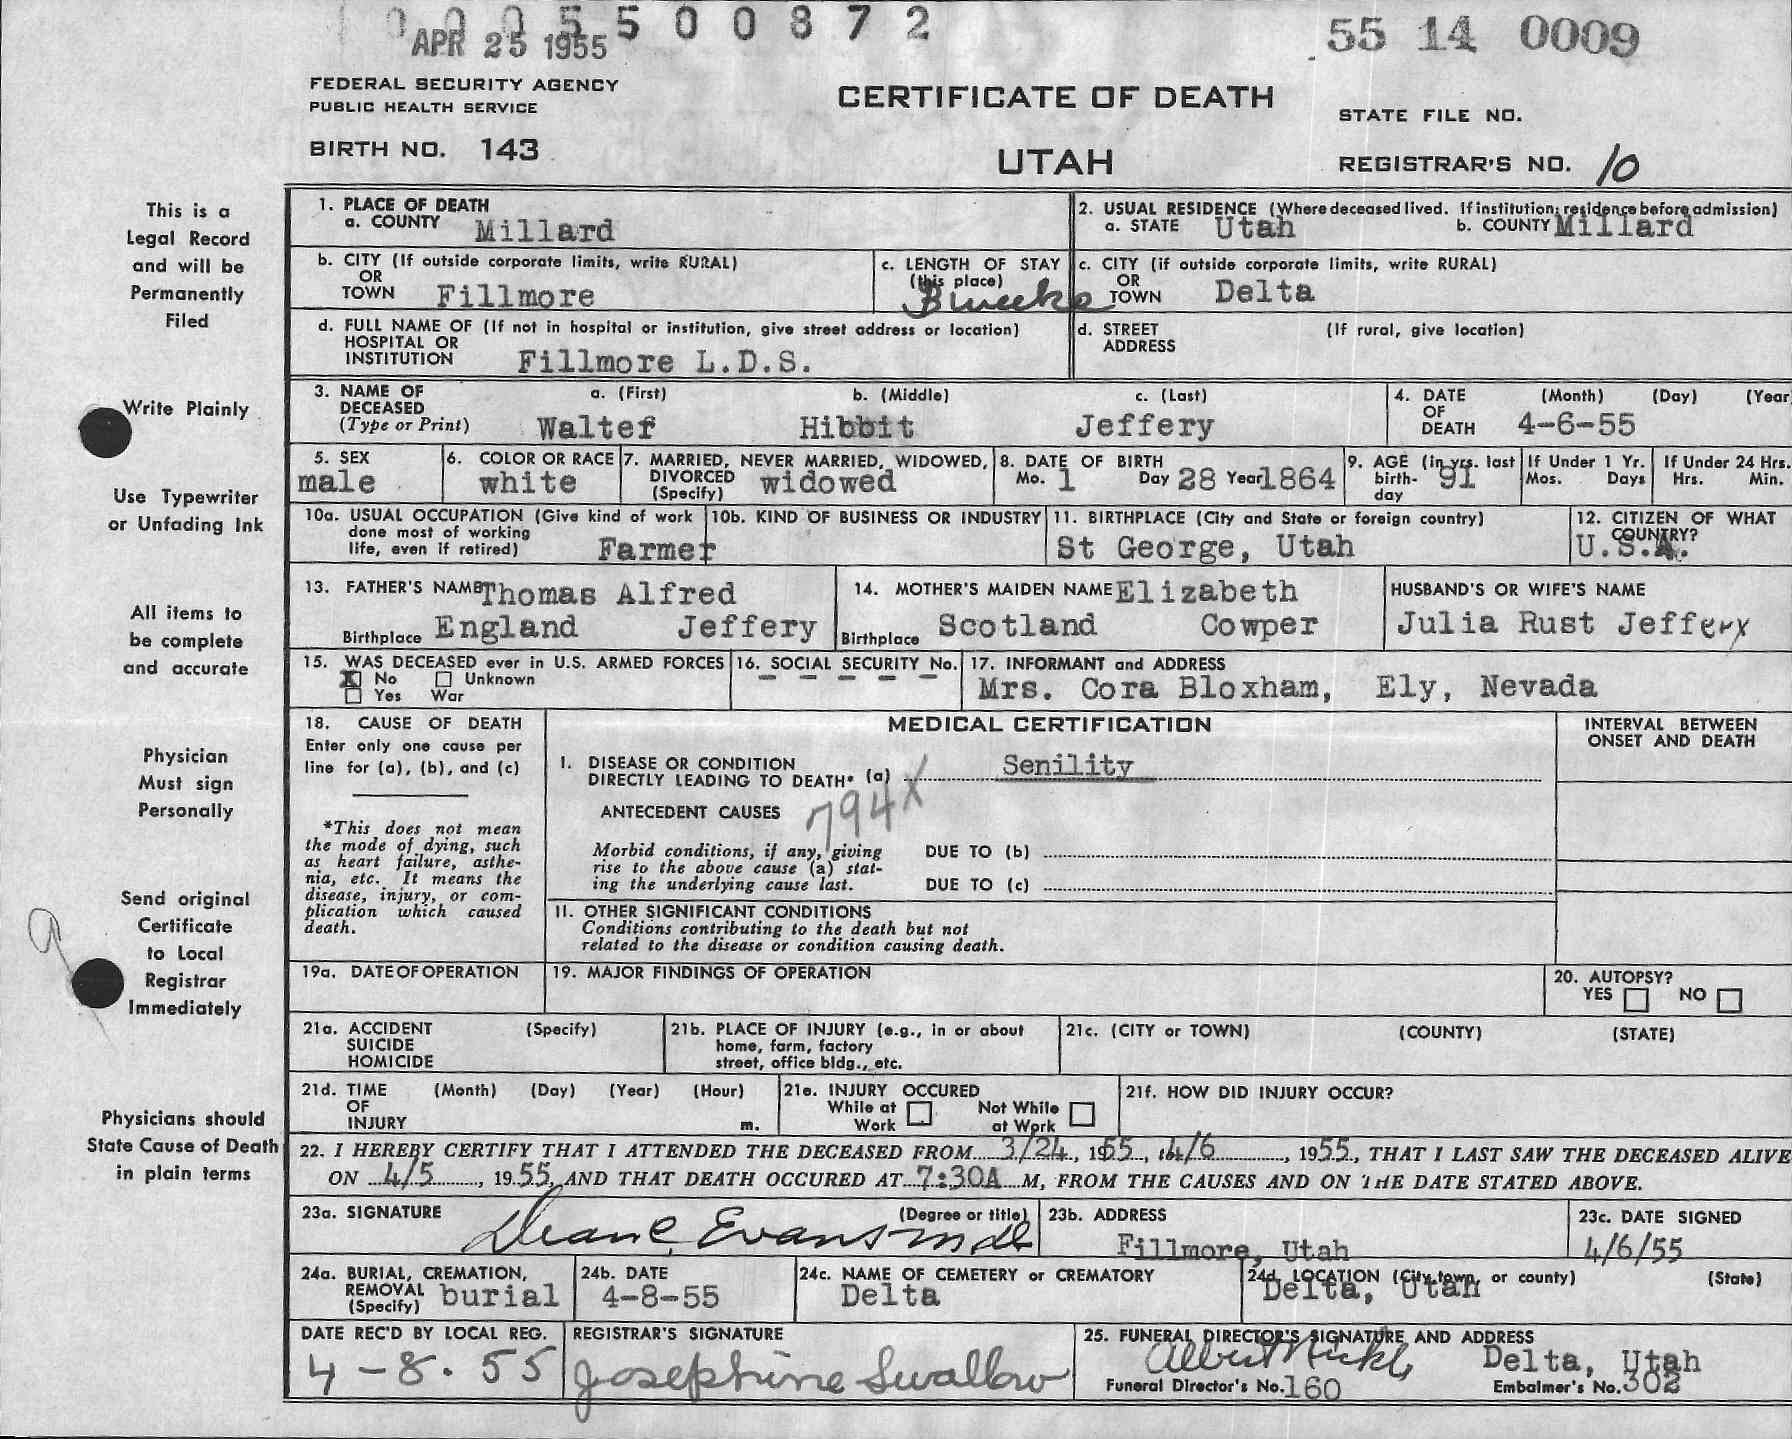 0005500872
APR 25 1955
55 14 0009
FEDERAL SECURITY AGENCY
PUBLIC HEALTH SERVICE
BIRTH NO. 143
CERTIFICATE OF DEATH
UTAH
STATE FILE NO.
REGISTRAR'S NO. 10
This is a
Legal Record
and will be
Permanently
Filed
Write Plainly
Use Typewriter
or Unfading Ink
All items to
be complete
and accurate
Physician
Must sign
Personally
Send original
Certificate
to Local
Registrar
Immediately
Physicians should
State Cause of Death
in plain terms
1. PLACE OF DEATH
a. COUNTY Millard
2. USUAL RESIDENCE (Where deceased lived. If institution: residence before admission)
a. STATE Utah b. COUNTY Millard
b. CITY (If outside corporate limits, write RURAL)
OR
TOWN Fillmore
c. LENGTH OF STAY
(this place)
weeks
c. CITY (if outside corporate limits, write RURAL)
OR
TOWN Delta
d. FULL NAME OF (If not in hospital or institution, give street address or location)
HOSPITAL OR
INSTITUTION Fillmore L.D.S.
d. STREET (If rural, give location)
ADDRESS
3. NAME OF a. (First) b. (Middle) c. (Last)
DECEASED
(Type or Print) Walter Hibbit Jeffery
4. DATE (Month) (Day) (Year
OF
DEATH 4-6-55
5. SEX
male
6. COLOR OR RACE
white
7. MARRIED, NEVER MARRIED, WIDOWED,
DIVORCED
(Specify) widowed
8. DATE OF BIRTH
Mo. 1 Day 28 Year 1864
9. AGE (in yrs. last
birth-
day 91
If Under 1 Yr.
Mos. Days
If Under 24 Hrs.
Hrs. Min.
10a. USUAL OCCUPATION (Give kind of work
done most of working
life, even if retired) Farmer
10b. KIND OF BUSINESS OR INDUSTRY
11. BIRTHPLACE (City and State or foreign country)
St George, Utah
12. CITIZEN OF WHAT
COUNTRY?
U.S.A.
13. FATHER'S NAME Thomas Alfred
Birthplace England Jeffery
14. MOTHER'S MAIDEN NAME Elizabeth
Birthplace Scotland Cowper
HUSBAND'S OR WIFE'S NAME
Julia Rust Jeffery
15. WAS DECEASED ever in U.S. ARMED FORCES
X No Unknown
Yes War
16. SOCIAL SECURITY No.
- - - - -
17. INFORMANT and ADDRESS
Mrs. Cora Bloxham, Ely, Nevada
18. CAUSE OF DEATH
Enter only one cause per
line for (a), (b), and (c)
*This does not mean
the mode of dying, such
as heart failure, asthe-
nia, etc. It means the
disease, injury, or com-
plication which caused
death.
MEDICAL CERTIFICATION
INTERVAL BETWEEN
ONSET AND DEATH
I. DISEASE OR CONDITION
DIRECTLY LEADING TO DEATH* (a) Senility
ANTECEDENT CAUSES 794X
Morbid conditions, if any, giving
rise to the above cause (a) stat-
ing the underlying cause last.
DUE TO (b)
DUE TO (c)
II. OTHER SIGNIFICANT CONDITIONS
Conditions contributing to the death but not
related to the disease or condition causing death.
19a. DATE OF OPERATION
19. MAJOR FINDINGS OF OPERATION
20. AUTOPSY?
YES NO
21a. ACCIDENT (Specify)
SUICIDE
HOMICIDE
21b. PLACE OF INJURY (e.g., in or about
home, farm, factory
street, office bldg., etc.
21c. (CITY or TOWN) (COUNTY) (STATE)
21d. TIME (Month) (Day) (Year) (Hour)
OF
INJURY m.
21e. INJURY OCCURED
While at Not While
Work at Work
21f. HOW DID INJURY OCCUR?
22. I HEREBY CERTIFY THAT I ATTENDED THE DECEASED FROM 3/24, 1955, 4/6, 1955, THAT I LAST SAW THE DECEASED ALIVE
ON 4/5, 1955, AND THAT DEATH OCCURED AT 7:30A M, FROM THE CAUSES AND ON THE DATE STATED ABOVE.
23a. SIGNATURE (Degree or title)
Evans
23b. ADDRESS
Fillmore, Utah
23c. DATE SIGNED
4/6/55
24a. BURIAL, CREMATION,
REMOVAL
(Specify) burial
24b. DATE
4-8-55
24c. NAME OF CEMETERY or CREMATORY
Delta
24d. LOCATION (City, town, or county) (State)
Delta, Utah
DATE REC'D BY LOCAL REG.
4-8-55
REGISTRAR'S SIGNATURE
Josephine Swallow
25. FUNERAL DIRECTOR'S SIGNATURE AND ADDRESS
Delta, Utah
Funeral Director's No. 160 Embalmer's No. 302